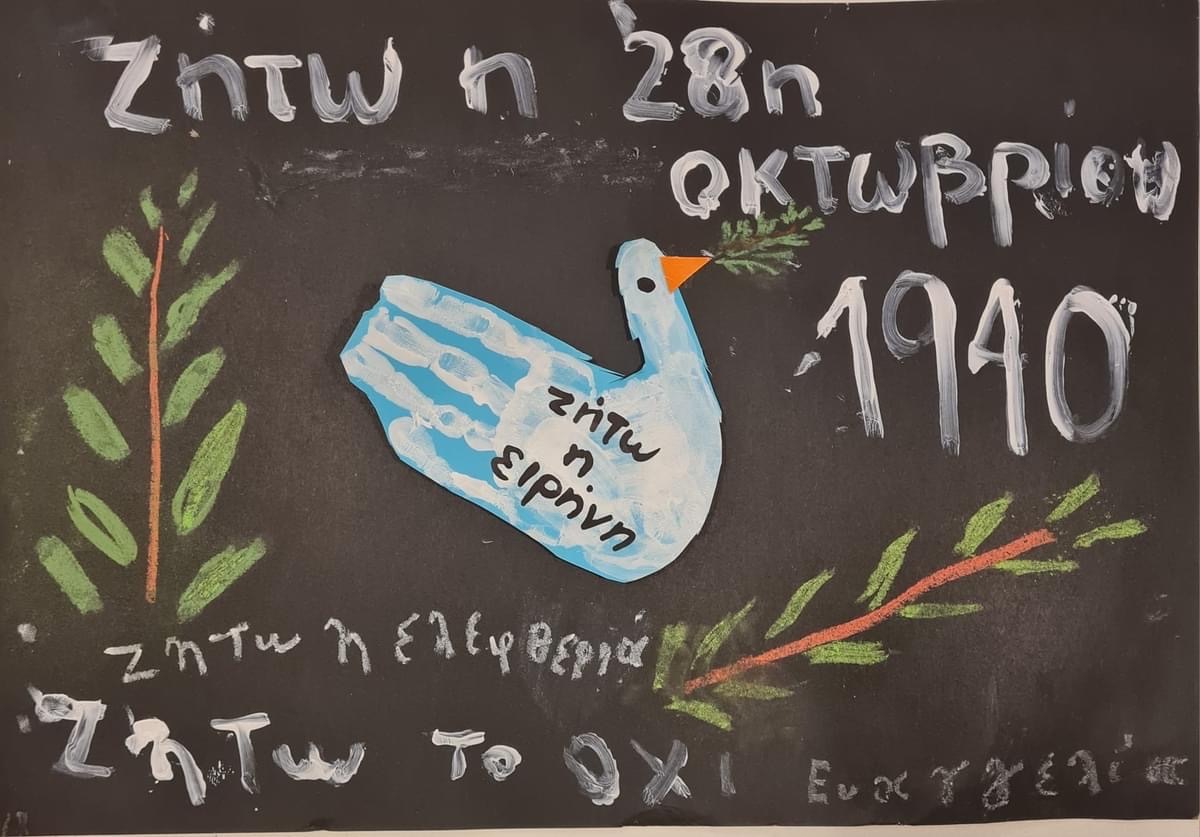 Ζήτω η 28η
οκτωβρίου
1940
ζήτω
η
ειρήνη
ζητω η ελεφθεριά
Ζητω το οχι Ευαγγελία